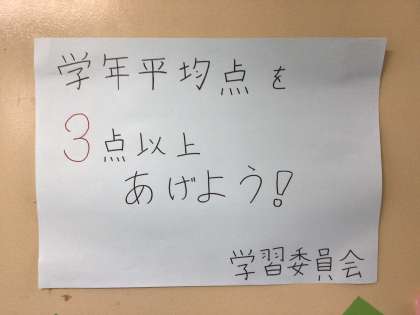 学年平均点を
3点以上
あげよう!
学習委員会